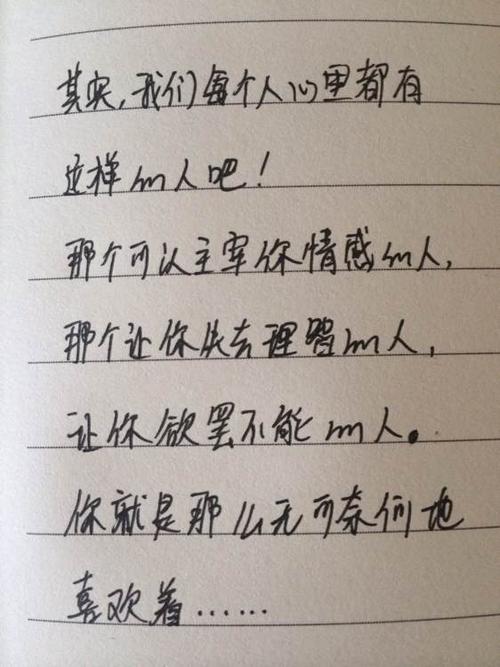 其实,我们每个人心里都有
这样的人吧!
那个可以主宰你情感的人,
那个让你失去理智的人,
让你欲罢不能的人。
你就是那么无可奈何地
喜欢着……